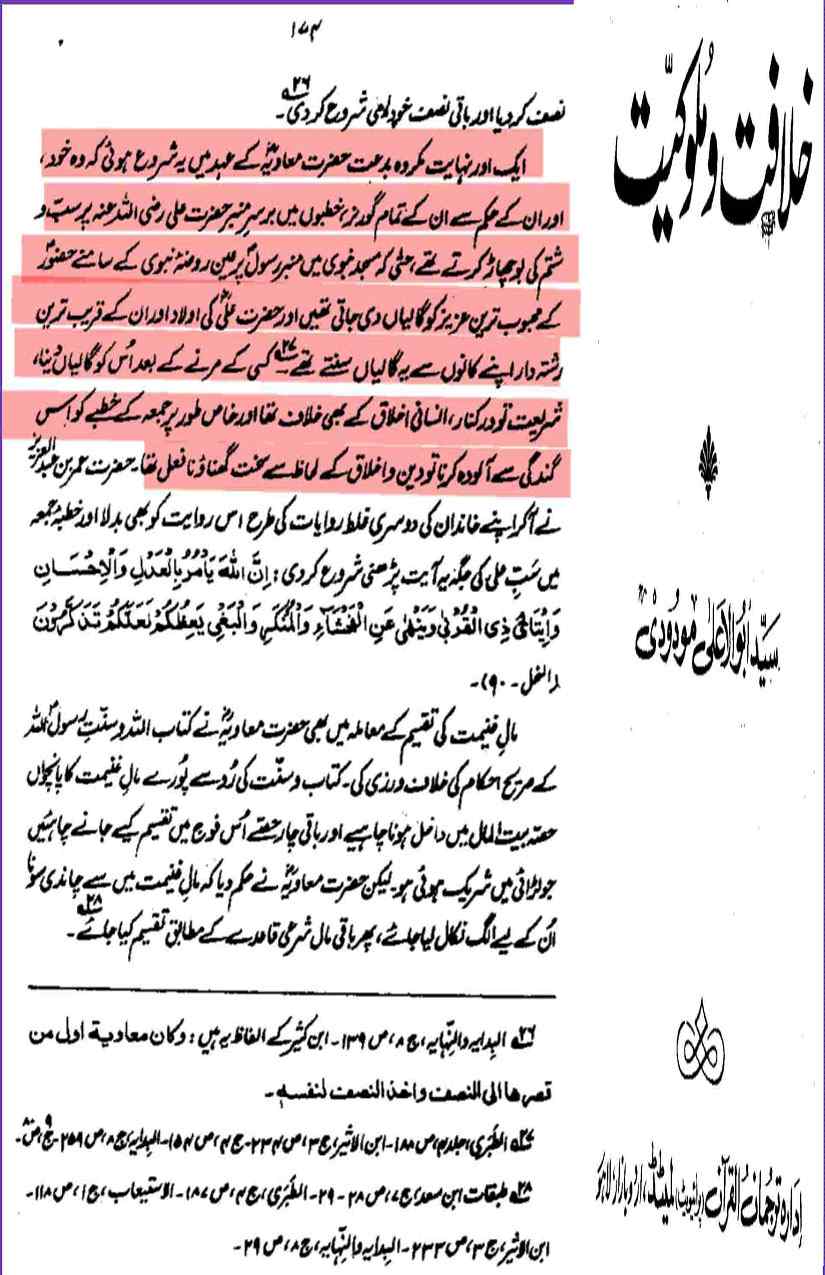 ۱۷۴
نصف کر دیا اور باقی نصف خود لینی شروع کر دی۲۶۔
ایک اور نہایت مکروہ بدعت حضرت معاویہؓ کے عہد میں یہ شروع ہوئی کہ وہ خود،
اور ان کے حکم سے ان کے تمام گورنر، خطبوں میں برسرِ منبر حضرت علی رضی اللہ عنہ پر سبّ و
شتم کی بوچھاڑ کرتے تھے، حتیٰ کہ مسجد نبوی میں منبرِ رسولؐ پر عین روضۂ نبوی کے سامنے حضورؐ
کے محبوب ترین عزیز کو گالیاں دی جاتی تھیں اور حضرت علیؓ کی اولاد اور ان کے قریب ترین
رشتہ دار اپنے کانوں سے یہ گالیاں سنتے تھے۲۷۔ کسی کے مرنے کے بعد اُس کو گالیاں دینا،
شریعت تو درکنار، انسانی اخلاق کے بھی خلاف تھا اور خاص طور پر جمعہ کے خطبے کو اِس
گندگی سے آلودہ کرنا تو دین و اخلاق کے لحاظ سے سخت گھناؤنا فعل تھا۔ حضرت عمر بن عبدالعزیز
نے آکر اپنے خاندان کی دوسری غلط روایات کی طرح اس روایت کو بھی بدلا اور خطبۂ جمعہ
میں سبِّ علی کی جگہ یہ آیت پڑھنی شروع کر دی: اِنَّ اللّٰہَ یَاْمُرُ بِالْعَدْلِ وَالْاِحْسَانِ
وَاِیْتَآئِ ذِی الْقُرْبٰی وَیَنْھٰی عَنِ الْفَحْشَآءِ وَالْمُنْکَرِ وَالْبَغْیِ یَعِظُکُمْ لَعَلَّکُمْ تَذَکَّرُوْنَ
(النحل۔ ۹۰)۔
مالِ غنیمت کی تقسیم کے معاملہ میں بھی حضرت معاویہؓ نے کتاب اللہ و سنّتِ رسولؐ اللہ
کے صریح احکام کی خلاف ورزی کی۔ کتاب و سنّت کی رُو سے پُورے مالِ غنیمت کا پانچواں
حصّہ بیت المال میں داخل ہونا چاہیے اور باقی چار حصّے اُس فوج میں تقسیم کیے جانے چاہئیں
جو لڑائی میں شریک ہوئی ہو۔ لیکن حضرت معاویہؓ نے حکم دیا کہ مالِ غنیمت میں سے چاندی سونا
اُن کے لیے الگ نکال لیا جائے، پھر باقی مال شرعی قاعدے کے مطابق تقسیم کیا جائے۲۸۔
۲۶ البدایہ والنّہایہ، ج ۸، ص ۱۳۹۔ ابن کثیرؒ کے الفاظ یہ ہیں: وکان معاویة اولی من
قصرھا الی النصف واخذ النصف لنفسہٖ۔
۲۷ الطبّری، جلد ۴، ص ۱۸۸۔ ابن الاثیر، ج ۳، ص ۲۳۴۔ ج ۴، ص ۱۵۴۔ البدایہ، ج ۸، ص ۲۵۹۔ ج ۹، ص ۸۰۔
۲۸ طبقات ابن سعد، ج ۷، ص ۲۸ - ۲۹۔ الطبّری، ج ۴، ص ۱۸۷۔ الاستیعاب، ج ۱، ص ۱۱۸۔
ابن الاثیر، ج ۳، ص ۲۳۳۔ البدایہ والنّہایہ، ج ۸، ص ۲۹۔
خلافت و ملوکیّت
سیّد ابوالاعلیٰ مودودیؒ
ادارہ ترجمان القرآن (پرائیویٹ) لمیٹڈ، اردو بازار لاہور